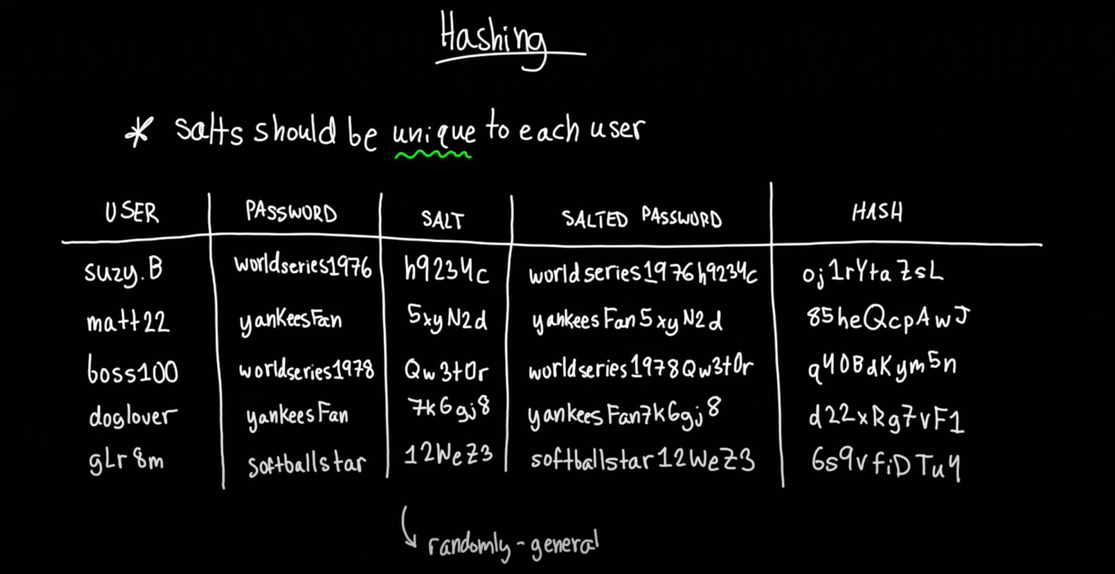 Hashing
* salts should be unique to each user
USER PASSWORD SALT SALTED PASSWORD HASH
suzy.B worldseries1976 h9234c worldseries1976h9234c oj1rYtaZsL
matt22 yankeesFan 5xyN2d yankeesFan5xyN2d 85heQcpAwJ
boss100 worldseries1978 Qw3t0r worldseries1978Qw3t0r q40BdKym5n
doglover yankeesFan 7k6gj8 yankeesFan7k6gj8 d22xRg7vF1
gLr8m softballstar 12WeZ3 softballstar12WeZ3 6s9vfiDTu4
randomly-general